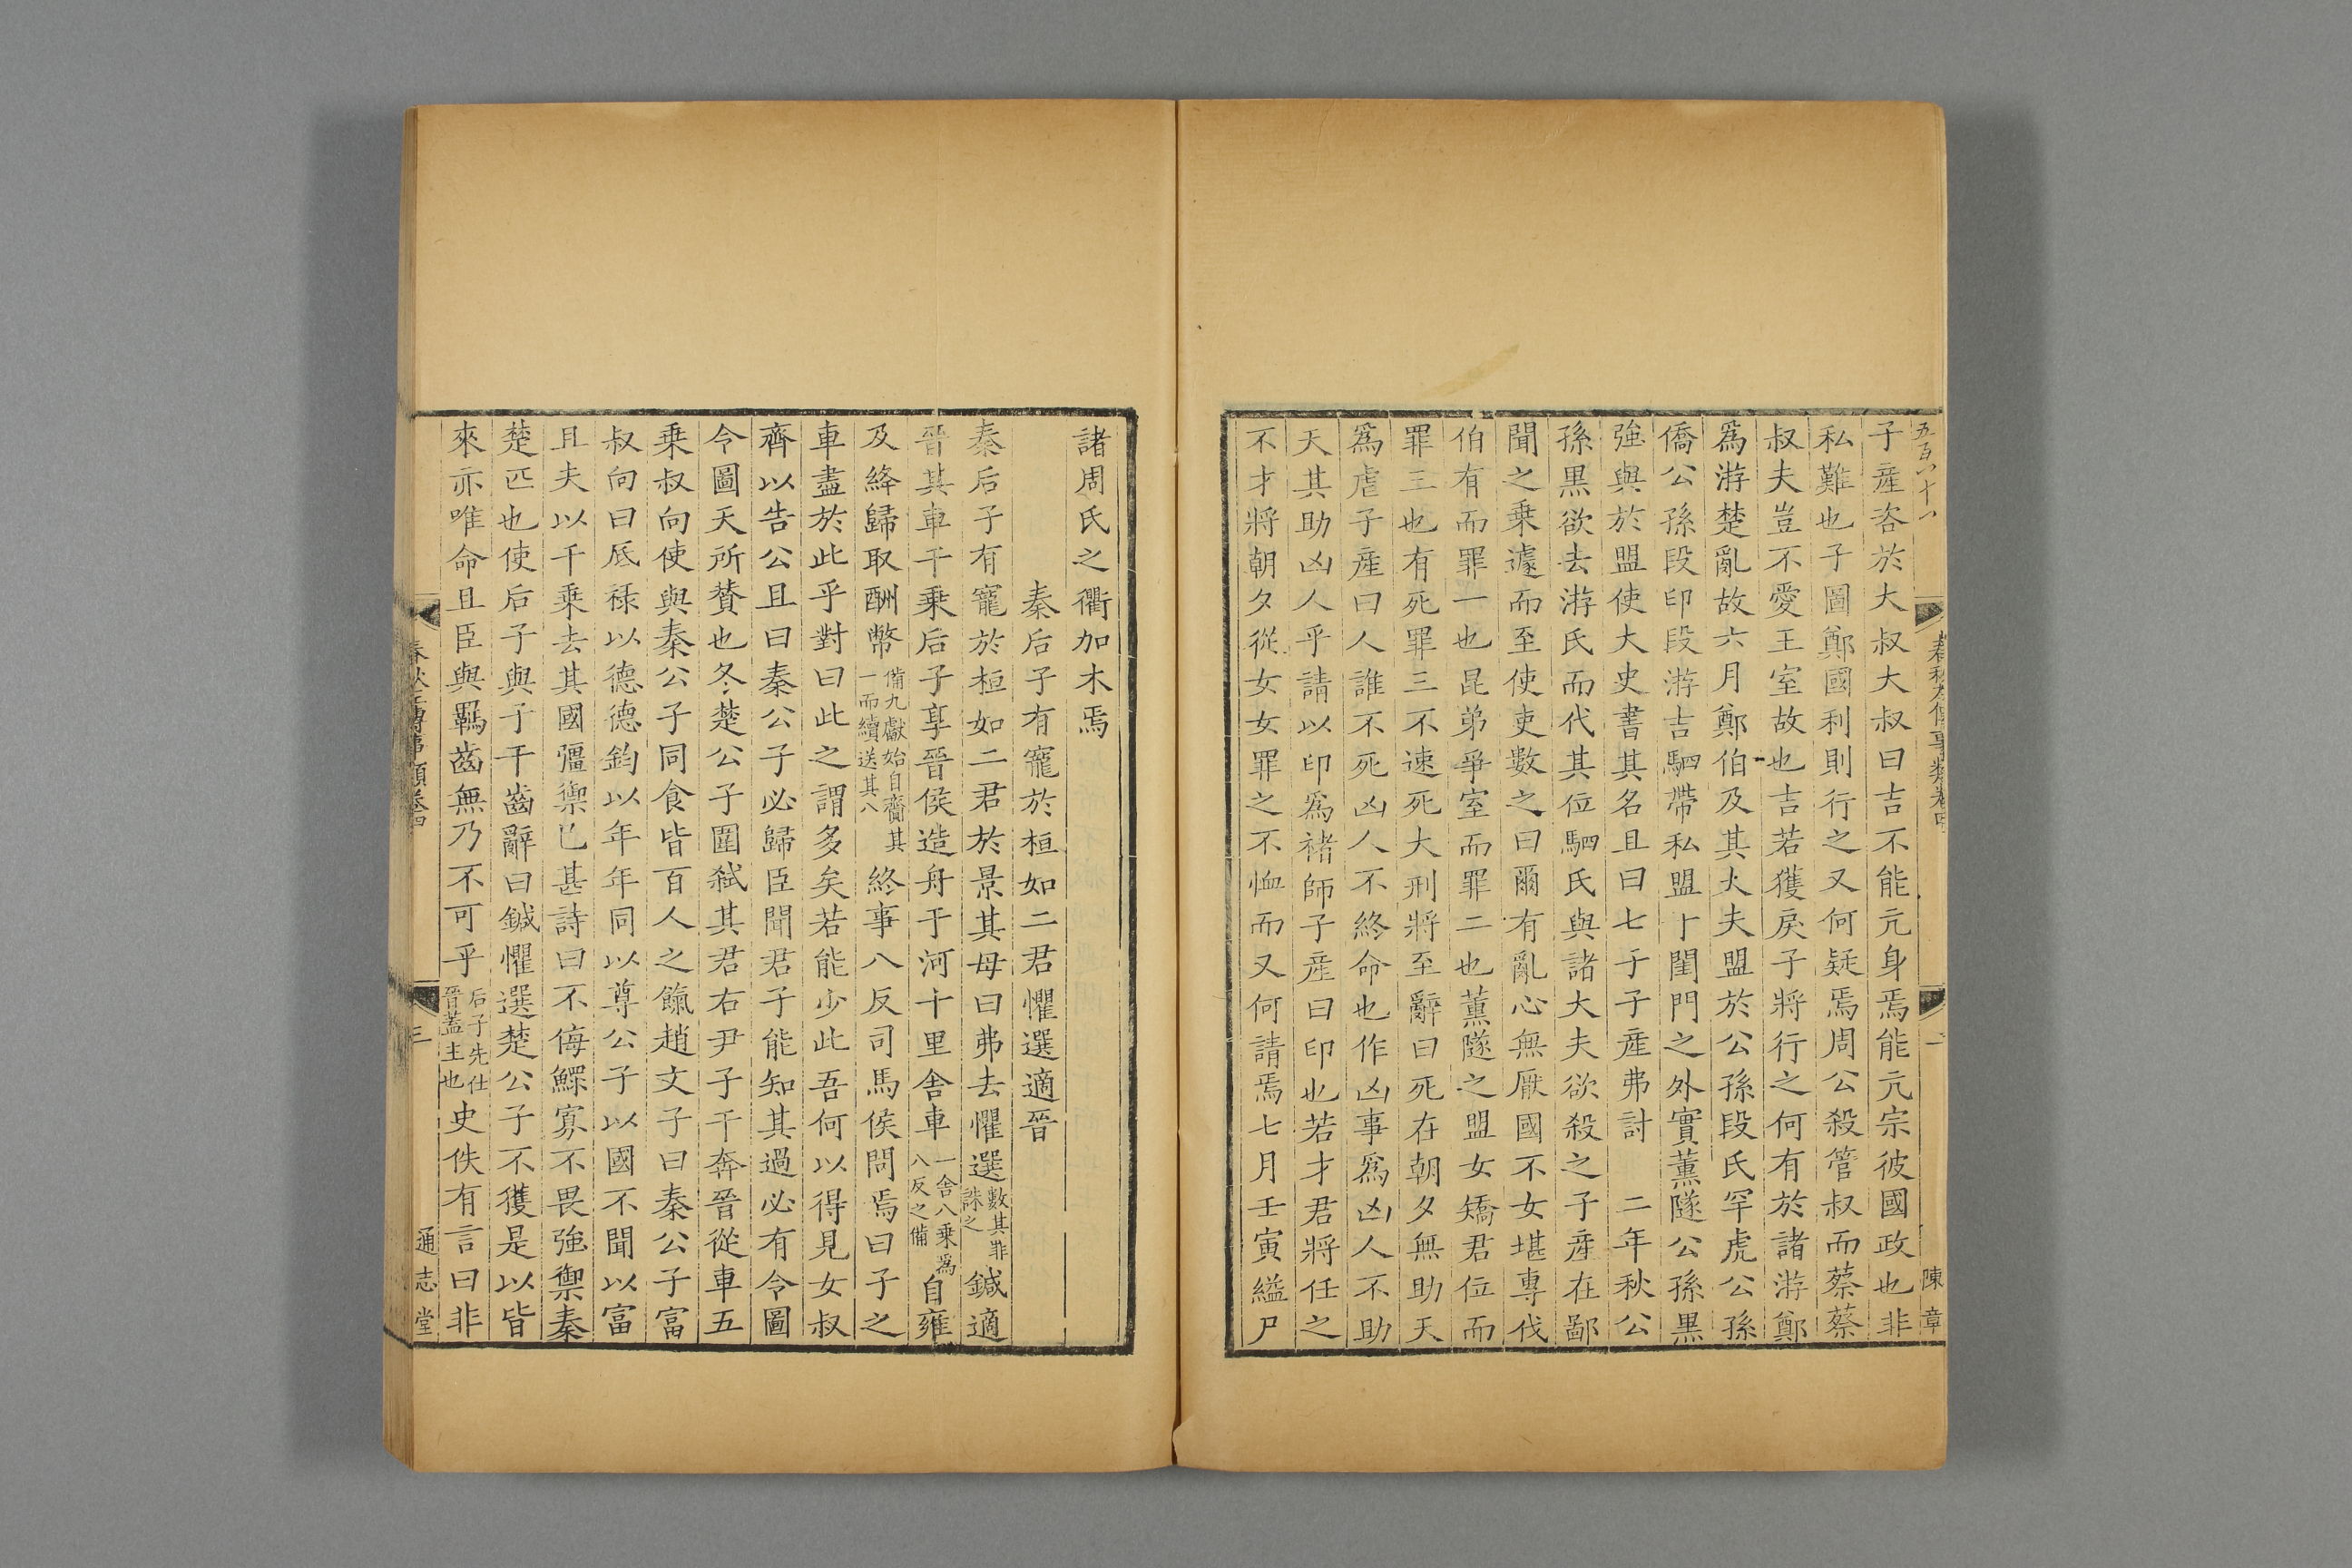 五百八十八
春秋左傳事類卷四
二
陳章
子產咨於大叔大叔曰吉不能亢身焉能亢宗彼國政也非
私難也子圖鄭國利則行之又何疑焉周公殺管叔而蔡蔡
叔夫豈不愛王室故也吉若獲戾子將行之何有於諸游鄭
爲游楚亂故六月鄭伯及其大夫盟於公孫段氏罕虎公孫
僑公孫段印段游吉駟帶私盟于閨門之外實薰隧公孫黑
強與於盟使大史書其名且曰七子子產弗討　二年秋公
孫黑欲去游氏而代其位駟氏與諸大夫欲殺之子產在鄙
聞之乗遽而至使吏數之曰爾有亂心無厭國不女堪專伐
伯有而罪一也昆弟爭室而罪二也薰隧之盟女矯君位而
罪三也有死罪三不速死大刑將至辭曰死在朝夕無助天
爲虐子產曰人誰不死凶人不終命也作凶事爲凶人不助
天其助凶人乎請以印爲褚師子產曰印也若才君將任之
不才將朝夕從女女罪之不恤而又何請焉七月壬寅縊尸
諸周氏之衢加木焉
秦后子有寵於桓如二君懼選適晉
秦后子有寵於桓如二君於景其母曰弗去懼選數其罪誅之鍼適
晉其車千乗后子享晉侯造舟于河十里舍車一舍八乗爲八反之備自雍
及絳歸取酬幣備九獻始自齎其一而續送其八終事八反司馬侯問焉曰子之
車盡於此乎對曰此之謂多矣若能少此吾何以得見女叔
齊以告公且曰秦公子必歸臣聞君子能知其過必有令圖
令圖天所贊也冬楚公子圍弑其君右尹子干奔晉從車五
乗叔向使與秦公子同食皆百人之餼趙文子曰秦公子富
叔向曰厎祿以德德鈞以年年同以尊公子以國不聞以富
且夫以千乗去其國彊禦已甚詩曰不侮鰥寡不畏強禦秦
楚匹也使后子與子干齒辭曰鍼懼選楚公子不獲是以皆
來亦唯命且臣與羈齒無乃不可乎后子先仕晉蓋主也史佚有言曰非
春秋左傳事類卷四
三
通志堂